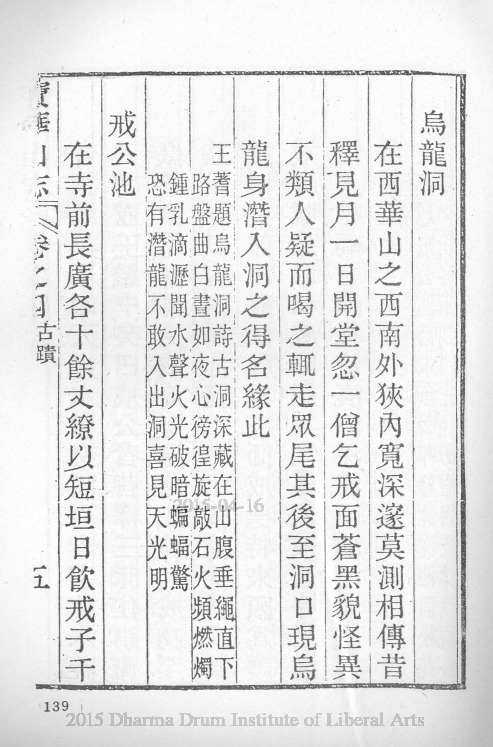 烏龍洞
在西華山之西南外狹內寬深邃莫測相傳昔
釋見月一日開堂忽一僧乞戒面蒼黑貌怪異
不類人疑而喝之輒走眾尾其後至洞口現烏
龍身潛入洞之得名緣此
王蓍題烏龍洞詩古洞深藏在山腹垂繩直下
路盤曲白晝如夜心徬徨旋敲石火頻燃燭
鍾乳滴瀝聞水聲火光破暗蝙蝠驚
恐有潛龍不敢入出洞喜見天光明
戒公池
在寺前長廣各十餘丈繚以短垣日飲戒子千
寶華山志 卷之四 古蹟 五
139
2016-04-16
2015 Dharma Drum Institute of Liberal Arts